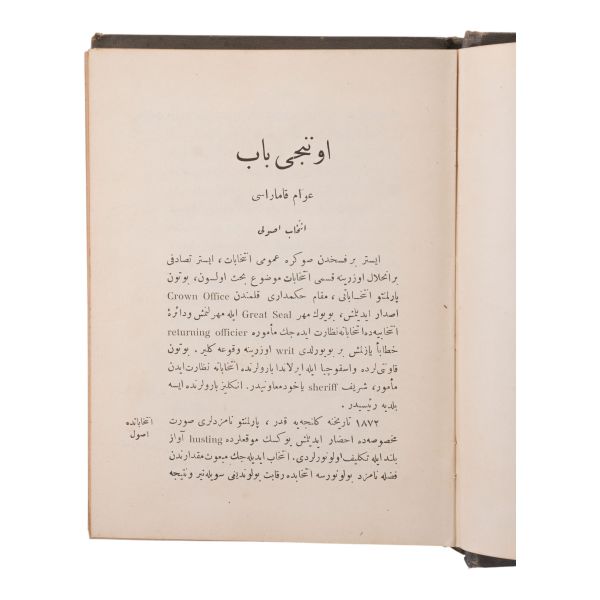 اوتنجی باب
عوام قاماراسی
انتخاب اصولی
ایستر بر فسخدن صوکره عمومی انتخابات ، ایستر تصادفی
بر انحلال اوزرینه قسمی انتخابات موضوع بحث اولسون، بوتون
پارلمنتو انتخاباتی ، مقام حکمداری قلمندن Crown Office
اصدار ایدیلمش ، بویوك مهر Great Seal ایله مهرلنمش و دائرۀ
انتخابیه ده انتخاباته نظارت ایده جك مأموره returning officier
خطاباً یازلمش بر بویورلدی writ اوزرینه وقوعه کلیر . بوتون
قاونتی لرده و اسقوچیا ایله ایرلاندا بارولرنده انتخاباته نظارت ایدن
مأمور، شریف sheriff یاخود معاونیدر. انکلیز بارولرنده ایسه
بلدیه رئیسیدر .
١٨٧٢ تاریخنه کلنجه یه قدر ، پارلمنتو نامزدلری صورت
مخصوصه ده احضار ایدیلمش یوکسك موقعلرده husting آواز
بلند ایله تکلیف اولونورلردی. انتخاب ایدیله جك مبعوث مقدارندن
فضله نامزد بولونورسه انتخابده رقابت بولوندیغی سویله نیر و نتیجه
انتخاباتده
اصول